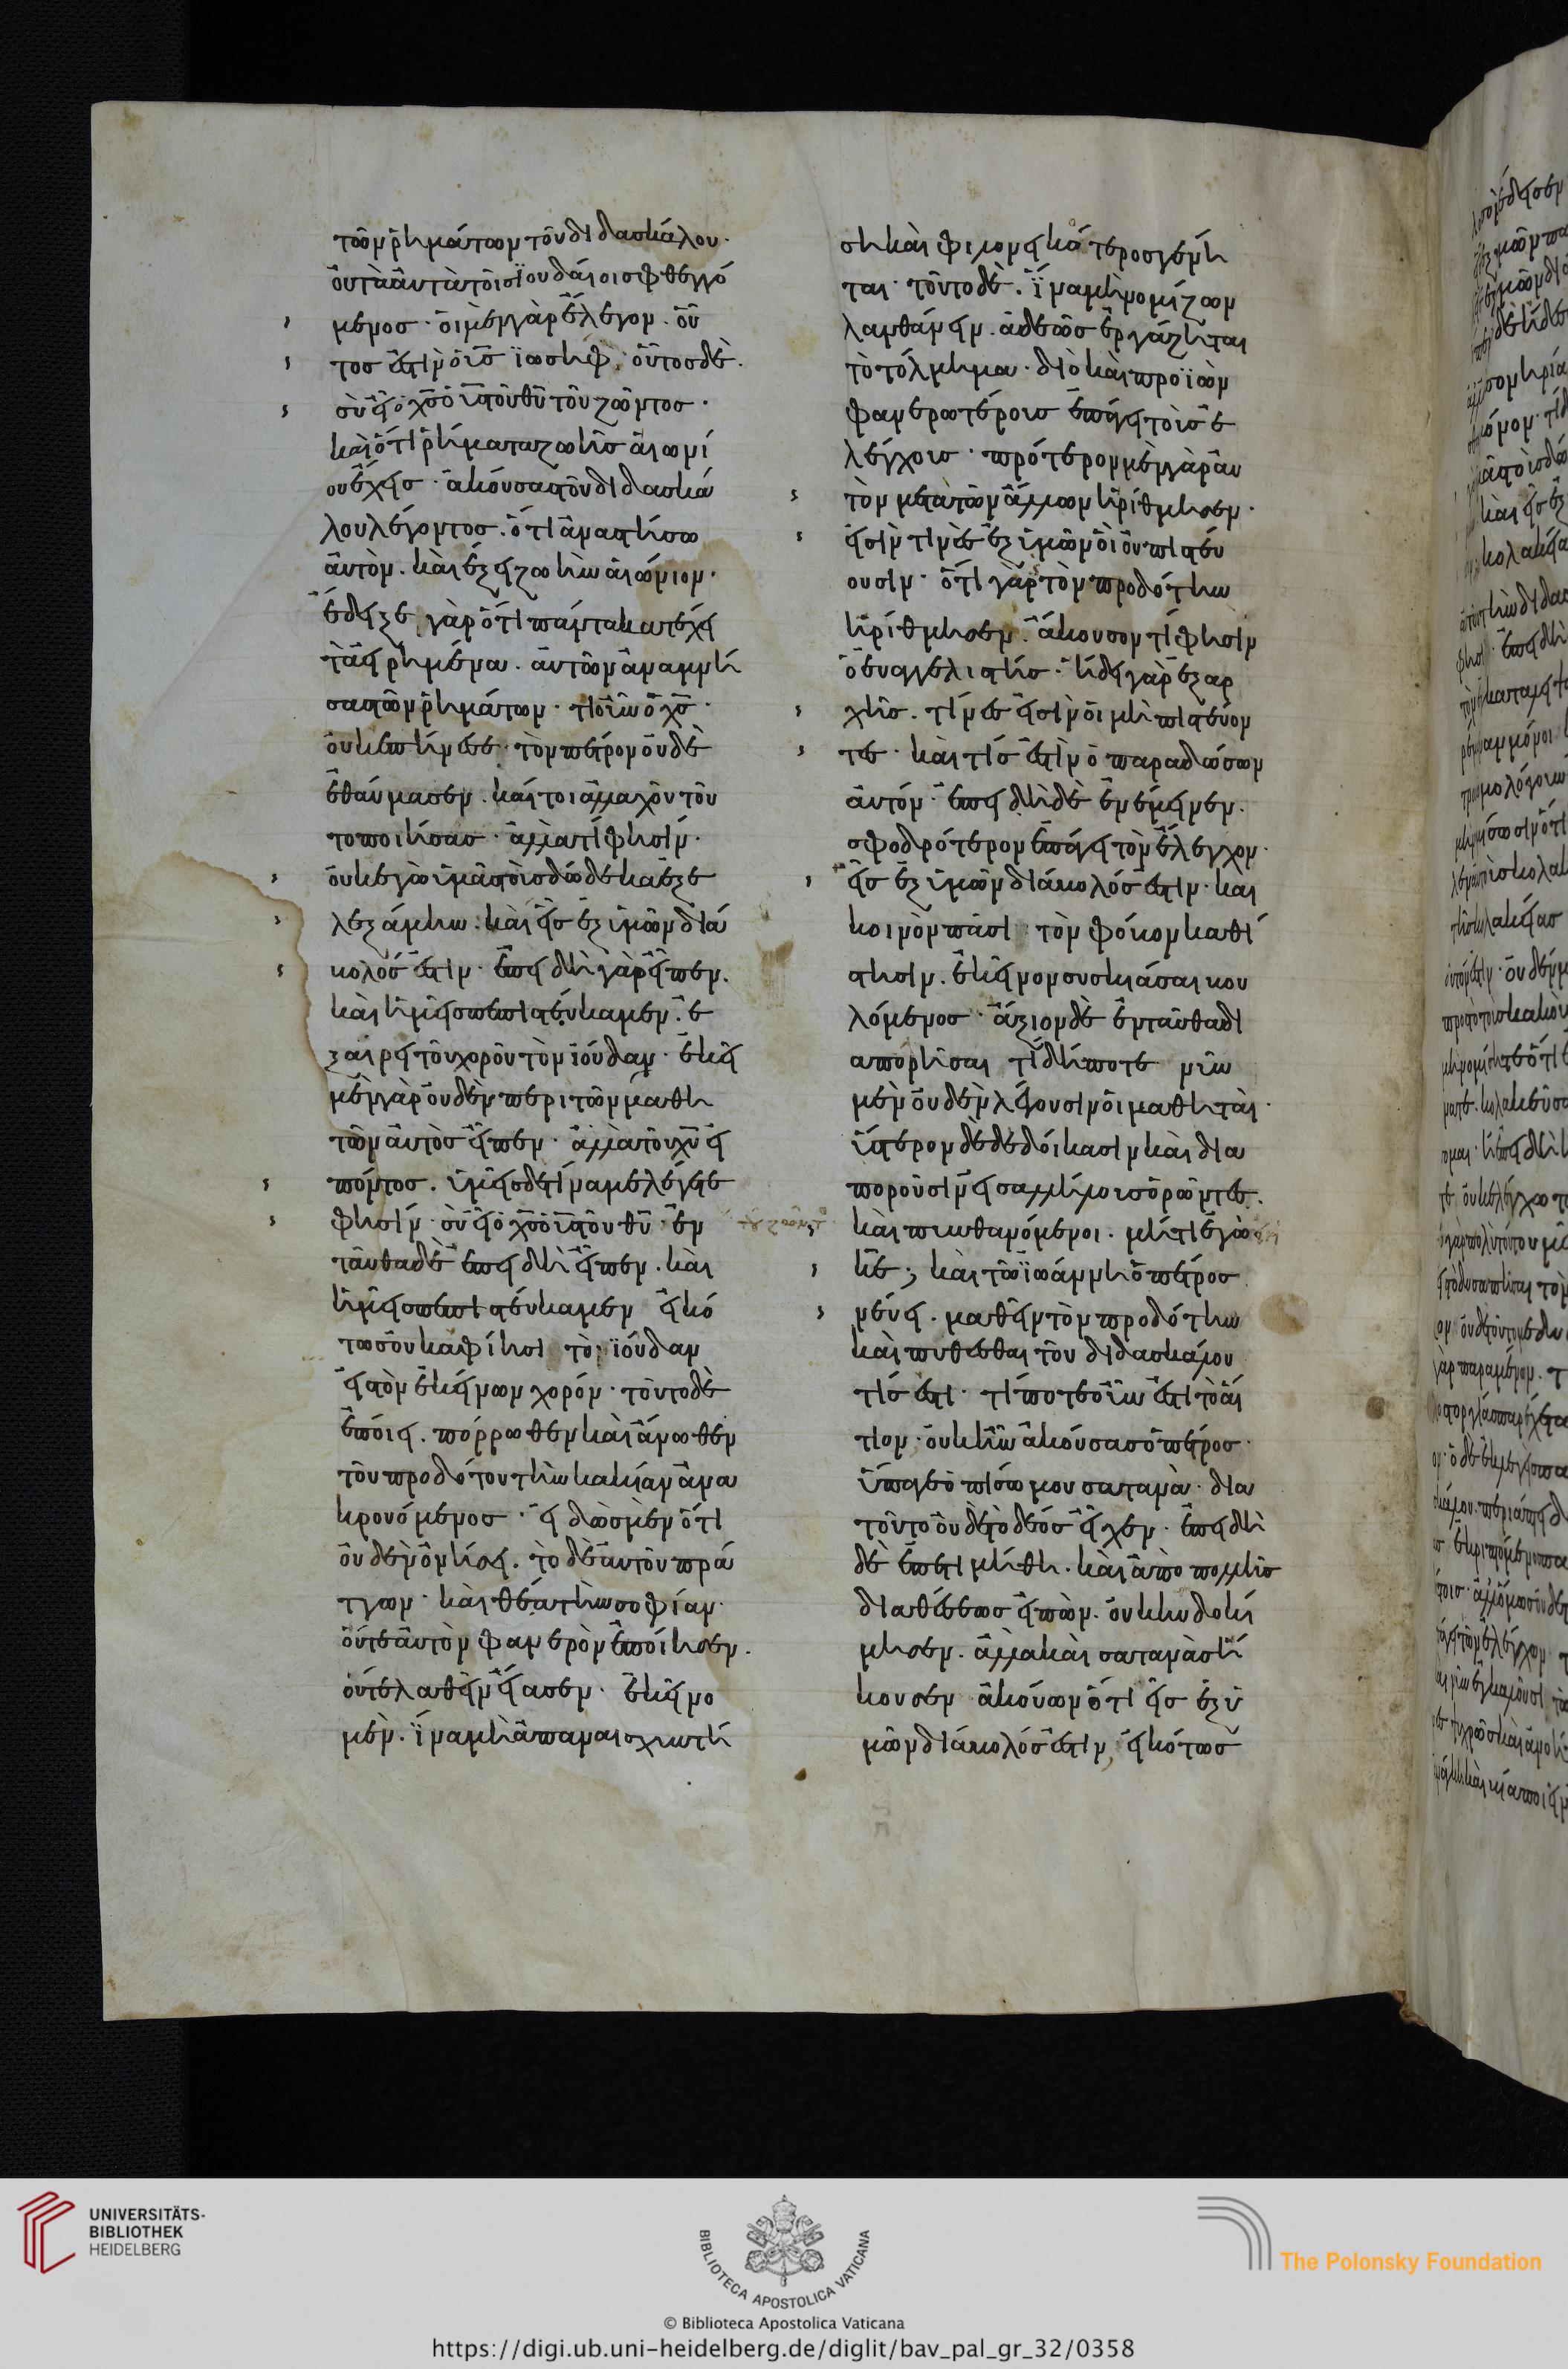 τῶν ῥημάτων τοῦ διδασκάλου·
οὐ τὰ αὐτὰ τοῖς ϊουδαίοις φθεγγό
μενος· οἱ μὲν γὰρ ἔλεγον· οὗ
τος ἐστὶν ὁ υἱς ϊωσήφ· οὗτος δὲ·
σὺ εἶ ὁ χς ὁ υς τοῦ θυ τοῦ ζῶντος·
καὶ ὅτι ῥήματα ζωῆς αἰωνί
ου ἔχεις· ἀκούσας τοῦ διδασκά
λου λέγοντος· ὅτι ἀναστήσω
αὐτὸν. καὶ ἕξει ζωὴν αἰώνιον·
ἔδειξε γὰρ ὅτι πάντα κατέχει
τὰ εἰρημένα. αὐτῶν ἀναμνή
σας τῶν ῥημάτων· τί οὖν ὁ χς·
οὐκ ἐπήνεσε τὸν πέτρον οὐδὲ
ἐθαύμασεν. καίτοι ἀλλαχοῦ τοῦ
το ποιήσας· ἀλλὰ τί φησίν·
οὐκ ἐγὼ ὑμᾶς τοὺς δώδεκα ἐξε
λεξάμην. καὶ εἷς ἐξ ὑμῶν διά
βολός ἐστιν· ἐπειδὴ γὰρ εἶπεν.
καὶ ἡμεῖς πεπιστεύκαμεν. ἐ
ξαιρεῖ τοῦ χοροῦ τὸν ϊούδαν· ἐκεῖ
μὲν γὰρ οὐδὲν περὶ τῶν μαθη
τῶν αὐτὸς εἶπεν· ἀλλὰ τοῦ χυ εἰ
πόντος. ὑμεῖς δὲ τίνα με λέγετε
φησίν· σὺ εἶ ὁ χς ὁ υς τοῦ θυ· ἐν
ταῦθα δὲ ἐπειδὴ εἶπεν. καὶ
ἡμεῖς πεπιστεύκαμεν εἰκό
τως οὐκ ἀφίησι τὸν ϊούδαν
εἰς τὸν ἐκείνων χορόν· τοῦτο δὲ
ἐποίει. πόρρωθεν καὶ ἄνωθεν
τοῦ προδότου τὴν κακίαν ἀνα
κρουόμενος· εἰδὼς μὲν ὅτι
οὐδὲν ὀνήσει. τὸ δὲ αὐτοῦ πρά
ττων· καὶ θέα τὴν σοφίαν·
οὔτε αὐτὸν φανερὸν ἐποίησεν.
οὔτε λαθεῖν εἴασεν· ἐκεῖνο
μὲν. ἵνα μὴ ἀπαναισχυντή
ση καὶ φιλονεικότερος γένη
ται· τοῦτο δὲ. ἵνα μὴ νομίζων
λανθάνειν. ἀδεῶς ἐργάζηται
τὸ τόλμημα· διὸ καὶ προϊὼν
φανερωτέροις ἐπάγει τοῖς ἐ
λέγχοις· πρότερον μὲν γὰρ αὐ
τὸν μετὰ τῶν ἄλλων ἠρίθμησεν·
εἰσίν τινὲς ἐξ ὑμῶν οἳ οὐ πιστεύ
ουσιν· ὅτι γὰρ τὸν προδότην
ἠρίθμησεν. ἄκουσον τί φησιν
ὁ εὐαγγελιστής· ᾔδει γὰρ ἐξ αρ
χῆς. τίνες εἰσὶν οἱ μὴ πιστεύον
τες· καὶ τίς ἐστὶν ὁ παραδώσων
αὐτόν· ἐπειδὴ δὲ ἐνέμεινεν.
σφοδρότερον ἐπάγει τὸν ἔλεγχον·
εἷς ἐξ ὑμῶν διάβολός ἐστιν· καὶ
κοινὸν πᾶσι τὸν φόβον καθί
στησιν. ἐκεῖνον συσκιάσαι βου
λόμενος· ἄξιον δὲ ἐνταῦθα δι
απορῆσαι τί δήποτε νῦν
μὲν οὐδὲν λέγουσιν οἱ μαθηταὶ·
ὕστερον δὲ δεδοίκασιν καὶ δια
ποροῦσιν εἰς ἀλλήλους ὁρῶντες.
καὶ πυνθανόμενοι. μήτι ἐγώ εἰμι
κε; καὶ τῷ ϊωάννη ὁ πέτρος
νεύει. μαθεῖν τὸν προδότην
καὶ πυθέσθαι τοῦ διδασκάλου
τίς ἐστι· τί ποτε οὖν ἐστι τὸ αἴ
τιον· οὐκ ἦν ἀκούσας ὁ πέτρος·
ὕπαγε ὀπίσω μου σατανᾶ· δια
τοῦτο οὐδὲ τὸ δέος εἶχεν· ἐπειδὴ
δὲ ἐπετιμήθη. καὶ ἀπὸ πολλῆς
διαθέσεως εἰπὼν. οὐκ ηὐδοκί
μησεν. ἀλλὰ καὶ σατανᾶς ἤ
κουσεν ἀκούων ὅτι εἷς ἐξ ὑ
μῶν διάβολός ἐστιν, εἰκότως
UNIVERSITÄTS-
BIBLIOTHEK
HEIDELBERG
BIBLIOTECA APOSTOLICA VATICANA
The Polonsky Foundation
© Biblioteca Apostolica Vaticana
https://digi.ub.uni-heidelberg.de/diglit/bav_pal_gr_32/0358